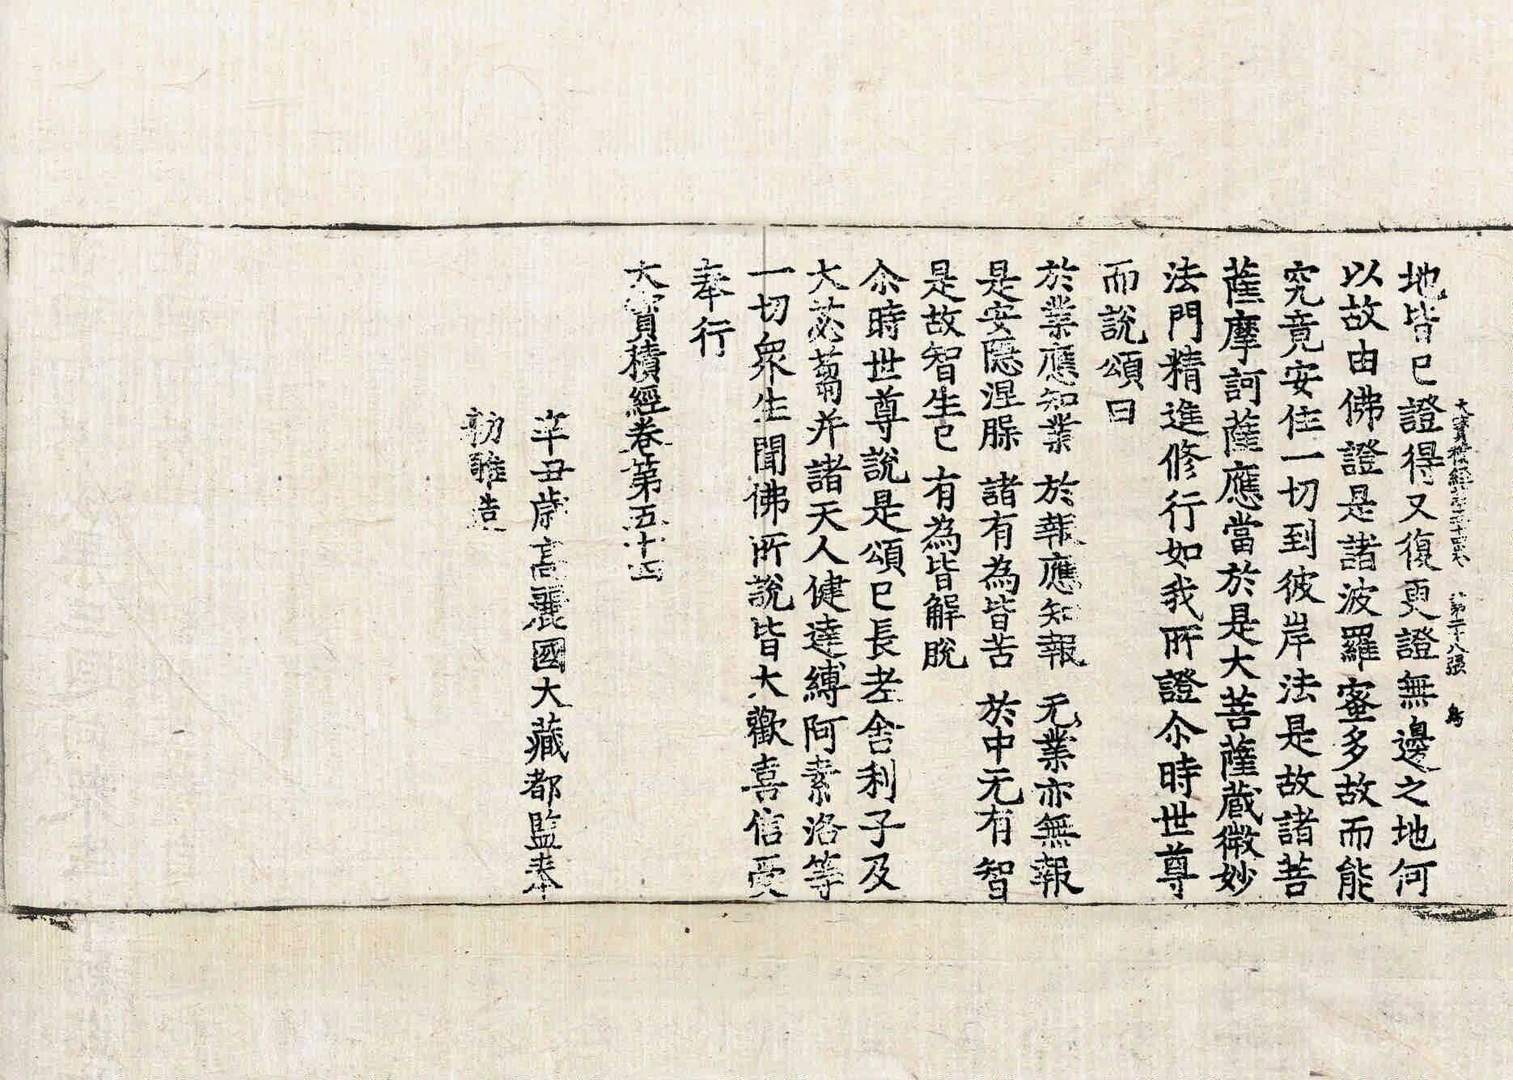 大寶積經卷五十四 第二十八張 鳥
地皆已證得又復更證無邊之地何
以故由佛證是諸波羅蜜多故而能
究竟安住一切到彼岸法是故諸菩
薩摩訶薩應當於是大菩薩藏微妙
法門精進修行如我所證尒時世尊
而說頌曰
於業應知業 於報應知報 无業亦無報
是安隱涅槃 諸有為皆苦 於中无有智
是故智生已 有為皆解脫
尒時世尊說是頌已長老舍利子及
大苾蒭并諸天人健達縛阿素洛等
一切衆生聞佛所說皆大歡喜信受
奉行
大寶積經卷第五十四
辛丑歲高麗國大藏都監奉
勑雕造